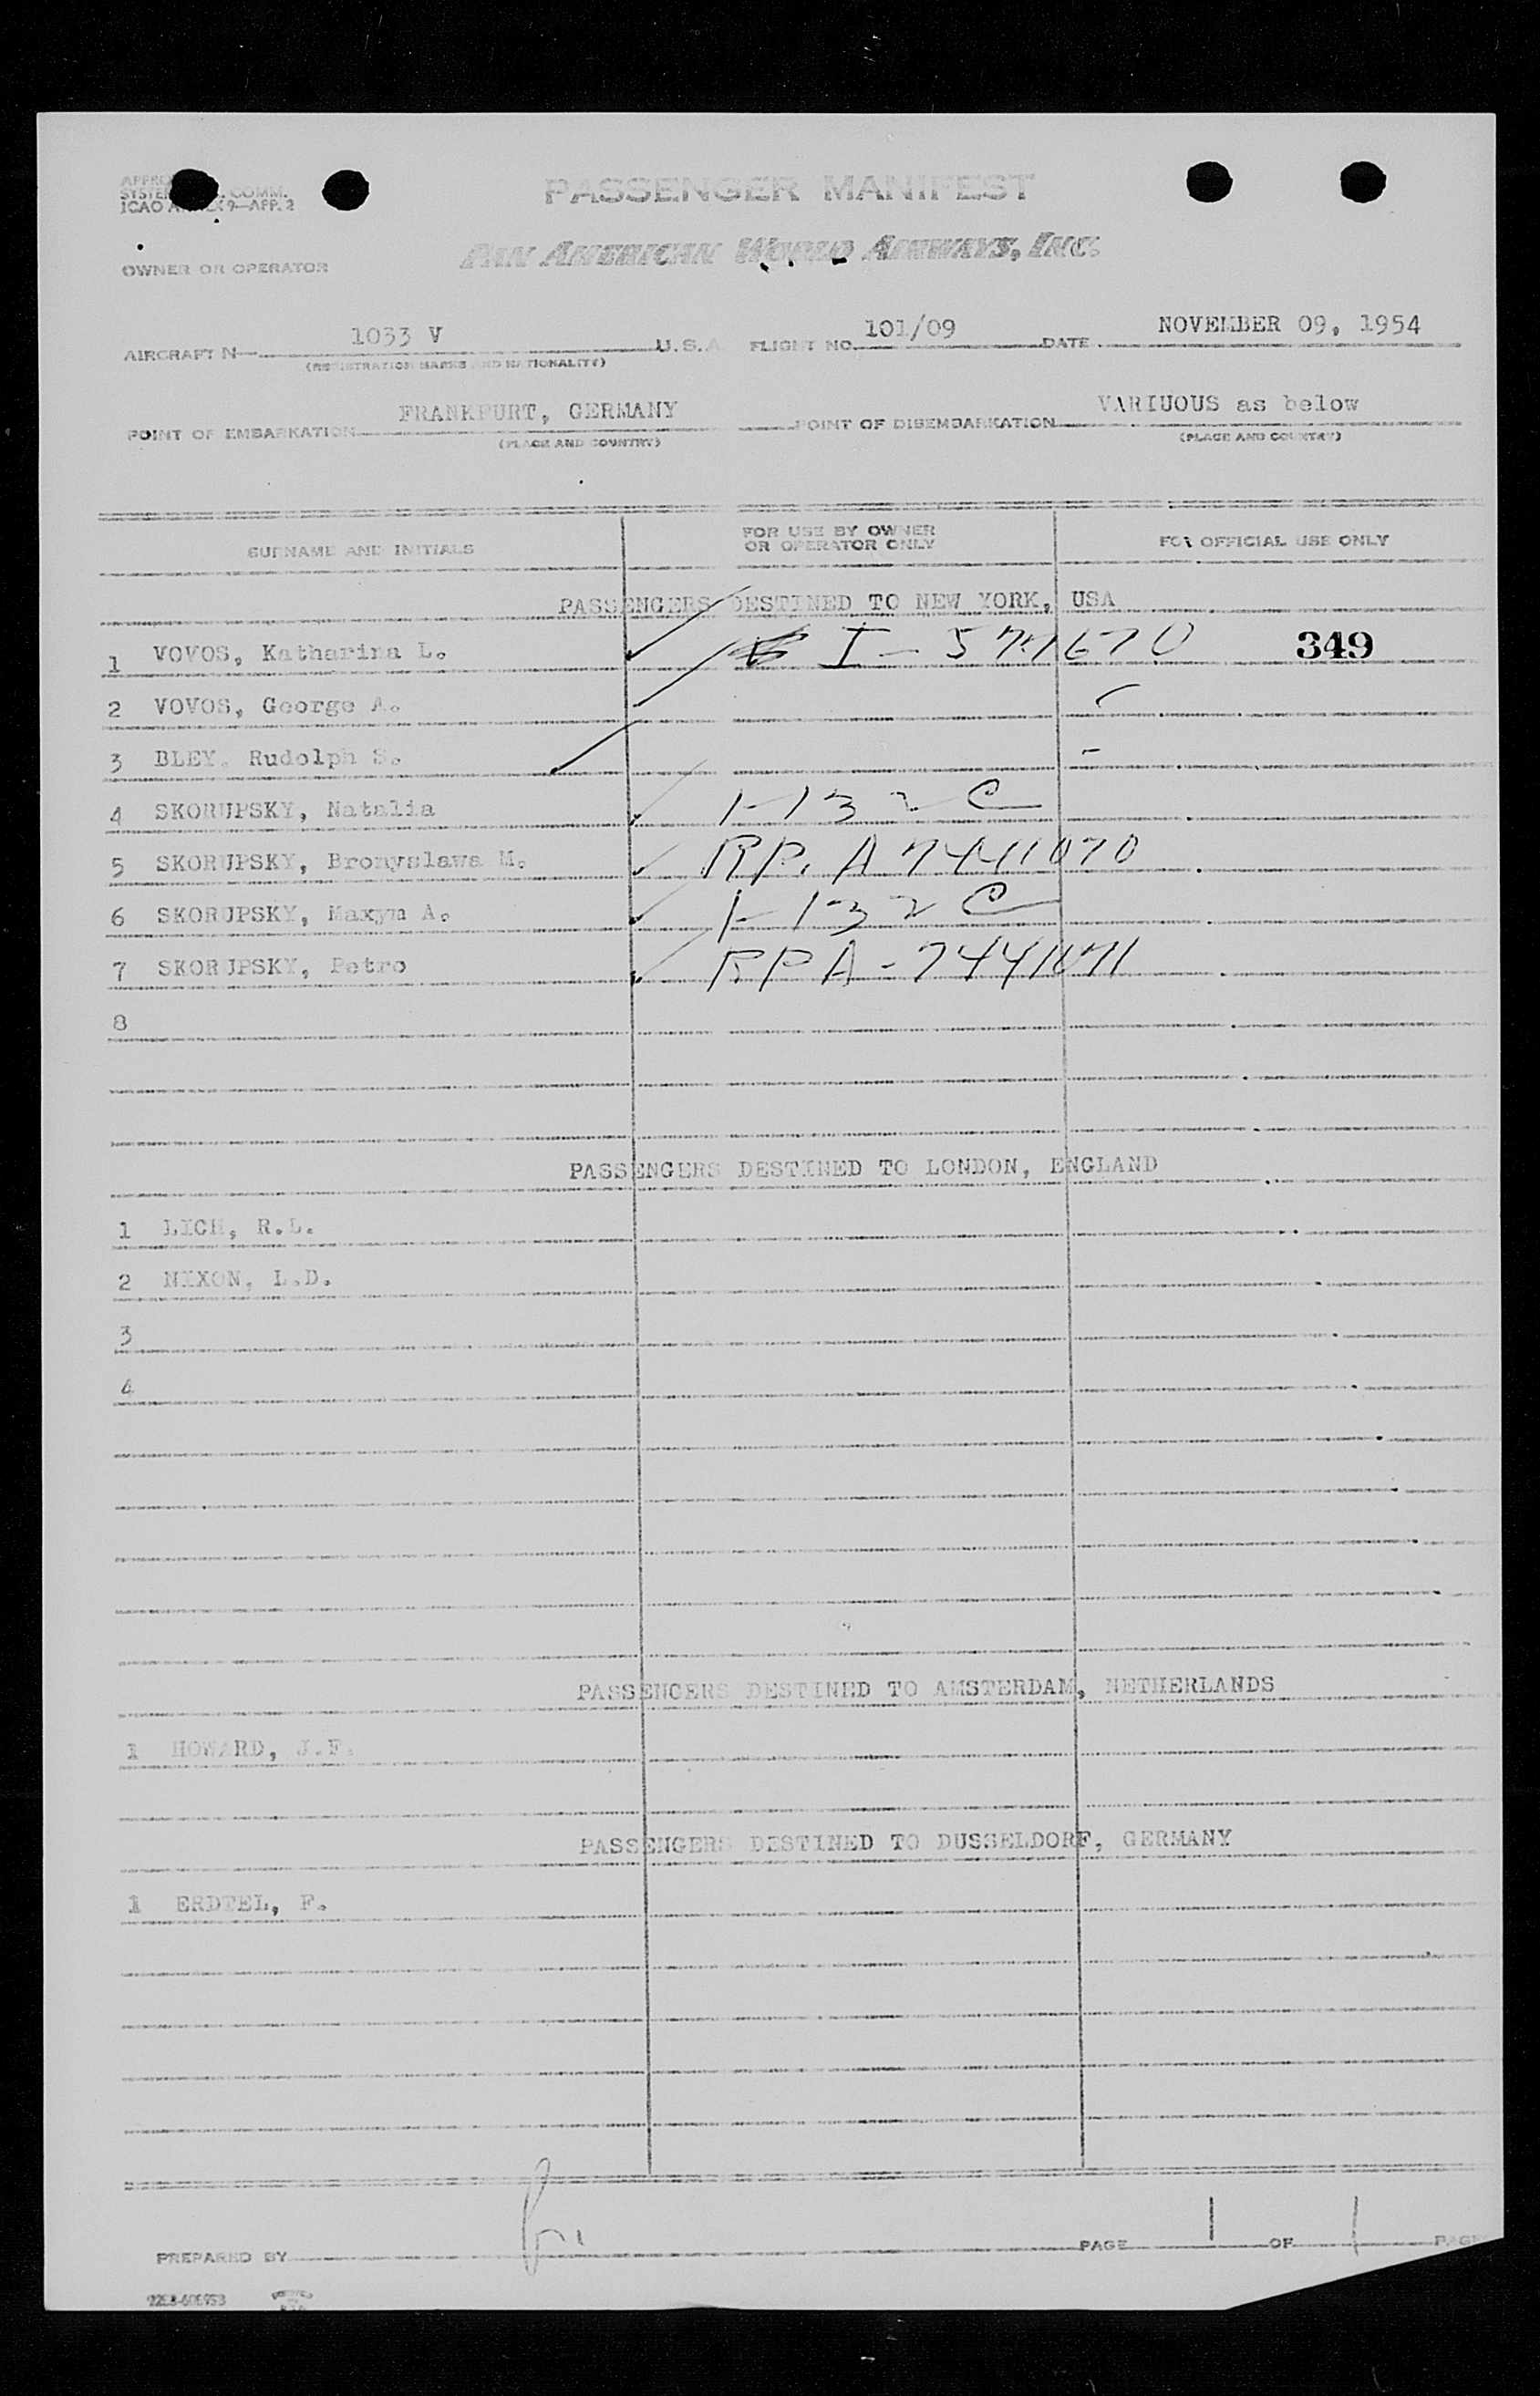 PASSENGER MANIFEST
SYSTEM COMM.
ICAO ANNEX 9—APP. 2
PAN AMERICAN WORLD AIRWAYS, INC.
OWNER OR OPERATOR
AIRCRAFT N— 1033 V U.S.A FLIGHT NO. 101/09 DATE NOVEMBER 09, 1954
(REGISTRATION MARKS AND NATIONALITY)
POINT OF EMBARKATION FRANKFURT, GERMANY POINT OF DISEMBARKATION VARIUOUS as below
(PLACE AND COUNTRY) (PLACE AND COUNTRY)
SURNAME AND INITIALS FOR USE BY OWNER OR OPERATOR ONLY FOR OFFICIAL USE ONLY
PASSENGERS DESTINED TO NEW YORK, USA
1 VOVOS, Katharina L. I - 349
2 VOVOS, George A.
3 BLEY, Rudolph S.
4 SKORUPSKY, Natalia 1-132 C
5 SKORUPSKY, Bronyslawa M. RP. A 7441070
6 SKORUPSKY, Maxym A. 1-132 C
7 SKORUPSKY, Petro RPA-7441071
8
PASSENGERS DESTINED TO LONDON, ENGLAND
1 LICH, R.L.
2 NIXON, L.D.
3
4
PASSENGERS DESTINED TO AMSTERDAM, NETHERLANDS
1 HOWARD, J.F.
PASSENGERS DESTINED TO DUSSELDORF, GERMANY
1 ERDTEL, F.
PREPARED BY PAGE 1 OF 1 PAGE